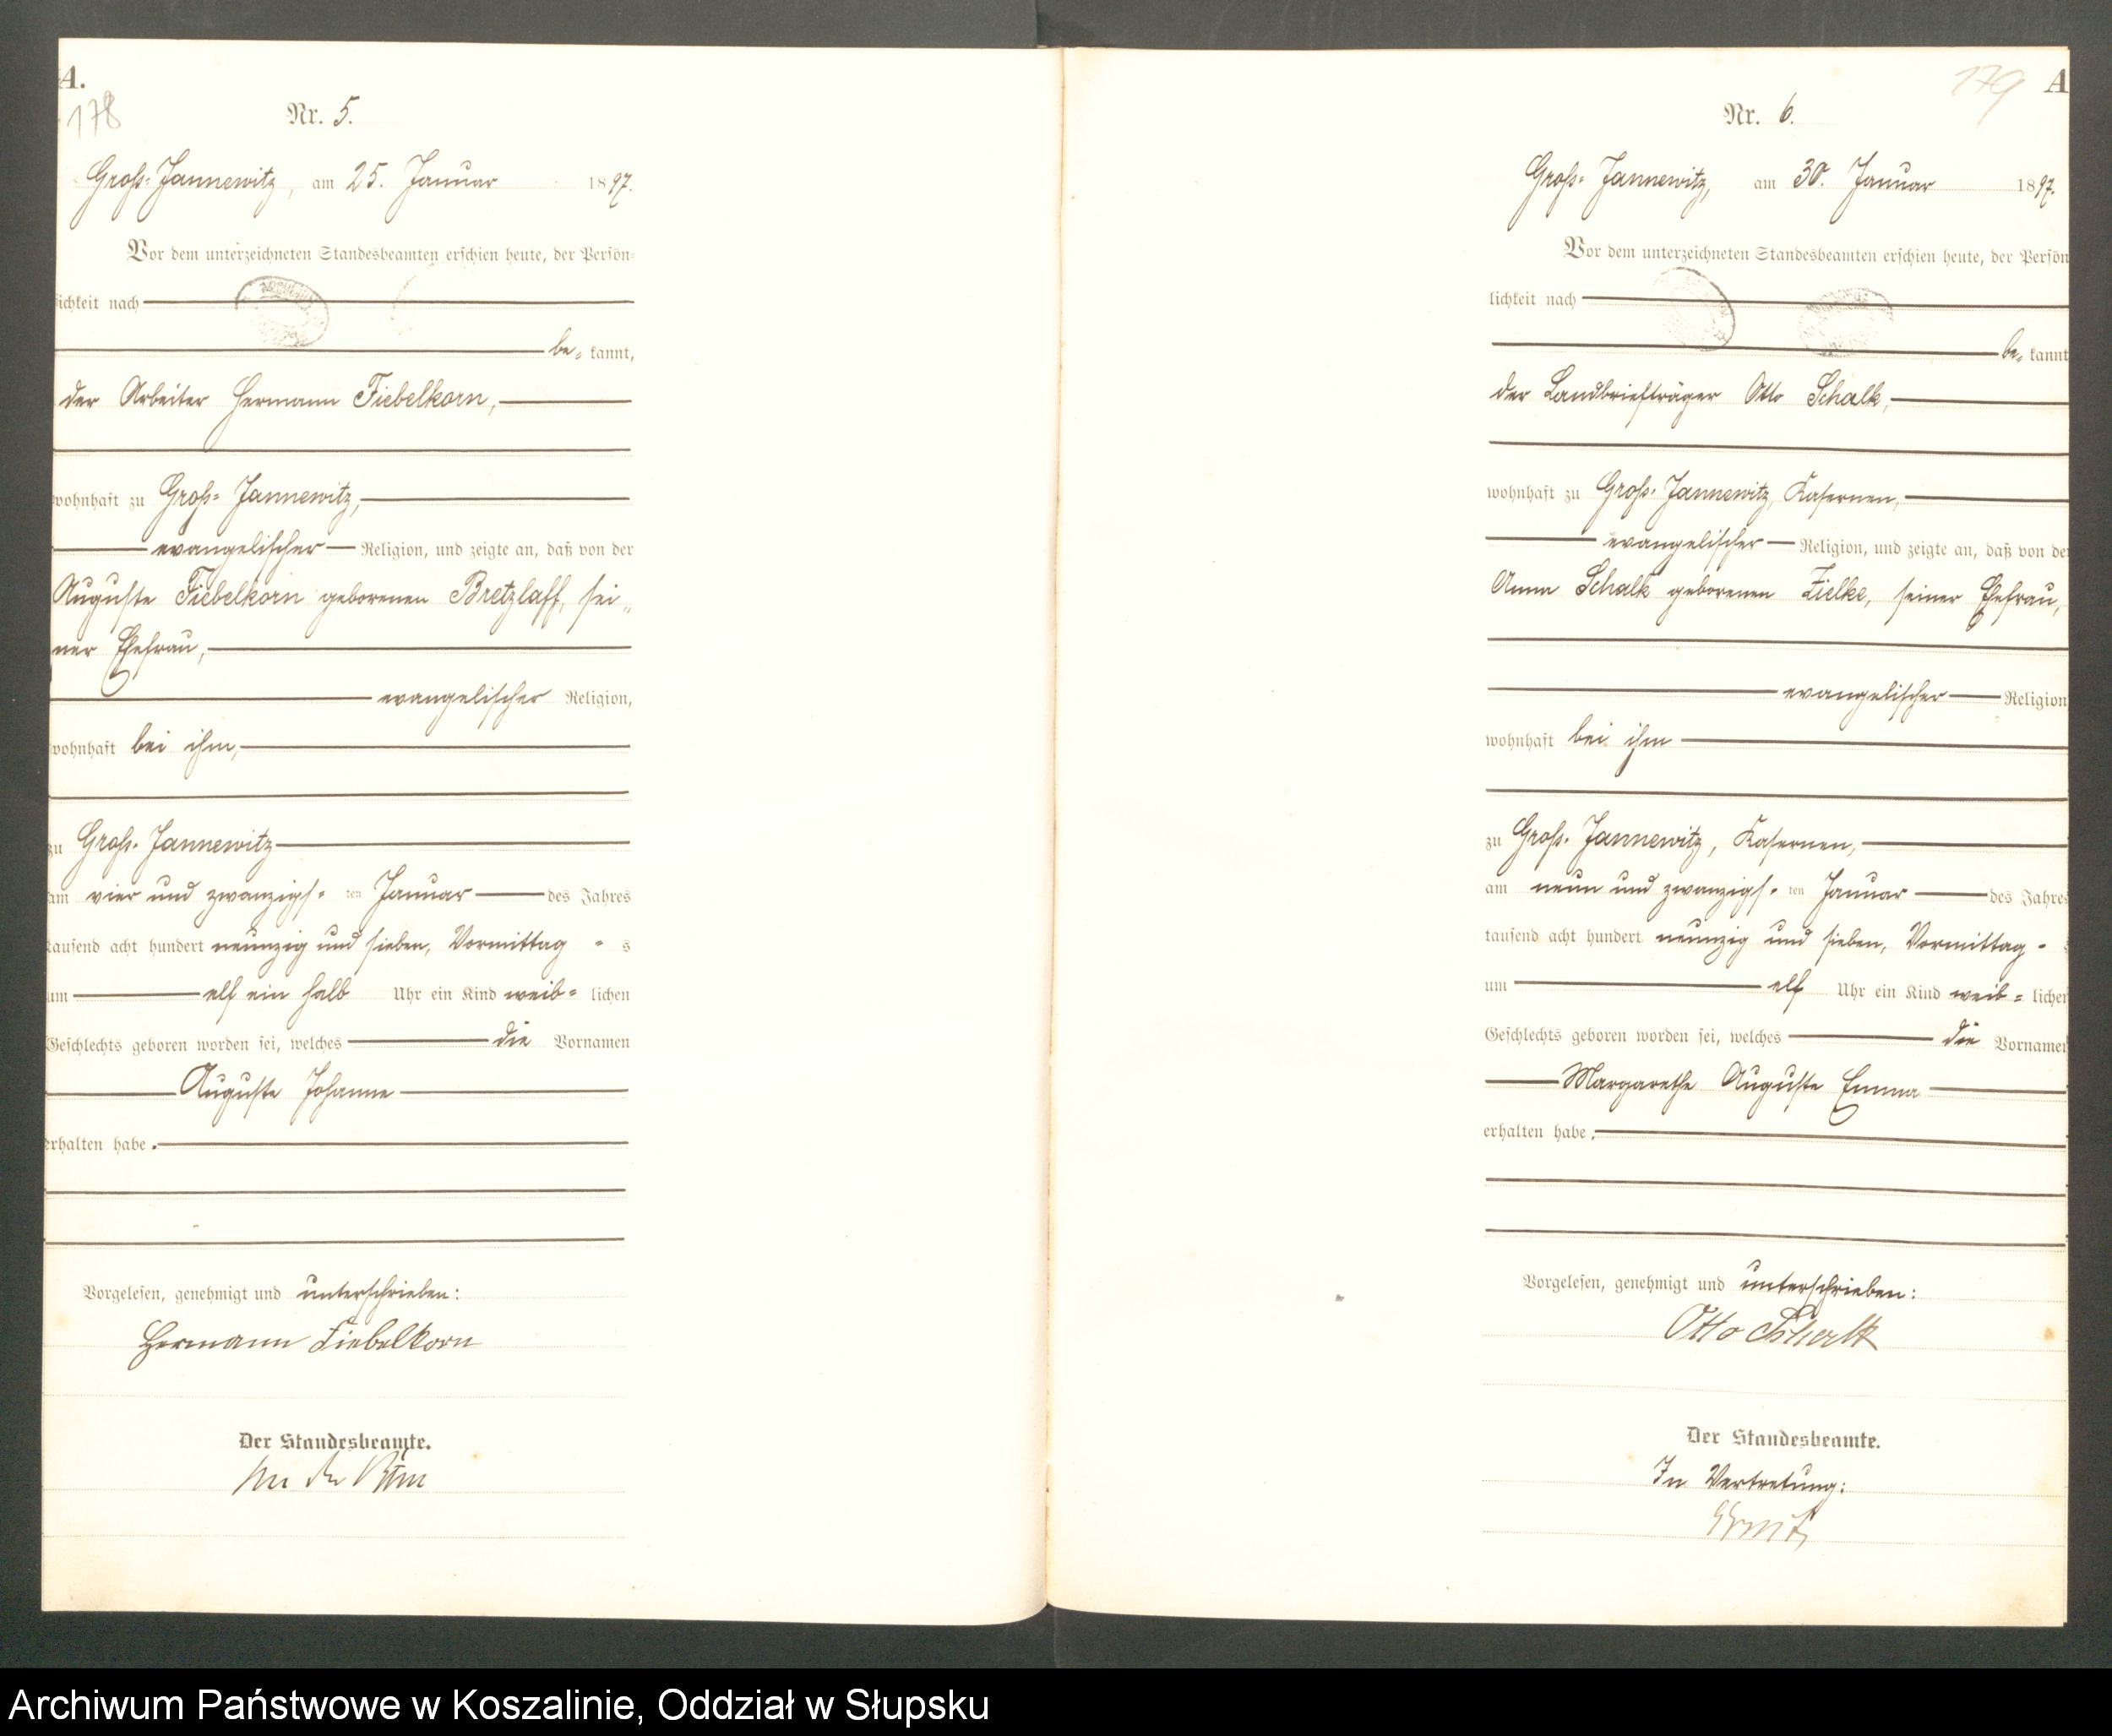 A.
178
Nr. 5.
Groß-Jannewitz, am 25. Januar 1897.
Vor dem unterzeichneten Standesbeamten erschien heute, der Persön-
lichkeit nach
be- kannt,
der Arbeiter Hermann Fiebelkorn,
wohnhaft zu Groß-Jannewitz,
evangelischer Religion, und zeigte an, daß von der
Auguste Fiebelkorn geborenen Bretzlaff, sei-
ner Ehefrau,
evangelischer Religion,
wohnhaft bei ihm,
zu Groß-Jannewitz
am vier und zwanzigs- ten Januar des Jahres
tausend acht hundert neunzig und sieben, Vormittag - s
um elf ein halb Uhr ein Kind weib- lichen
Geschlechts geboren worden sei, welches die Vornamen
Auguste Johanne
erhalten habe.
Vorgelesen, genehmigt und unterschrieben:
Hermann Fiebelkorn
Der Standesbeamte.
179
A
Nr. 6.
Groß-Jannewitz, am 30. Januar 1897.
Vor dem unterzeichneten Standesbeamten erschien heute, der Persön
lichkeit nach
be- kannt
der Landbriefträger Otto Schalk,
wohnhaft zu Groß-Jannewitz, Kasernen,
evangelischer Religion, und zeigte an, daß von der
Anna Schalk geborenen Zielke, seiner Ehefrau,
evangelischer Religion
wohnhaft bei ihm
zu Groß-Jannewitz, Kasernen,
am neun und zwanzigs- ten Januar des Jahres
tausend acht hundert neunzig und sieben, Vormittag -
um elf Uhr ein Kind weib- lichen
Geschlechts geboren worden sei, welches die Vornamen
Margarethe Auguste Emma
erhalten habe.
Vorgelesen, genehmigt und unterschrieben:
Otto Schalk
Der Standesbeamte.
In Vertretung:
Archiwum Państwowe w Koszalinie, Oddział w Słupsku